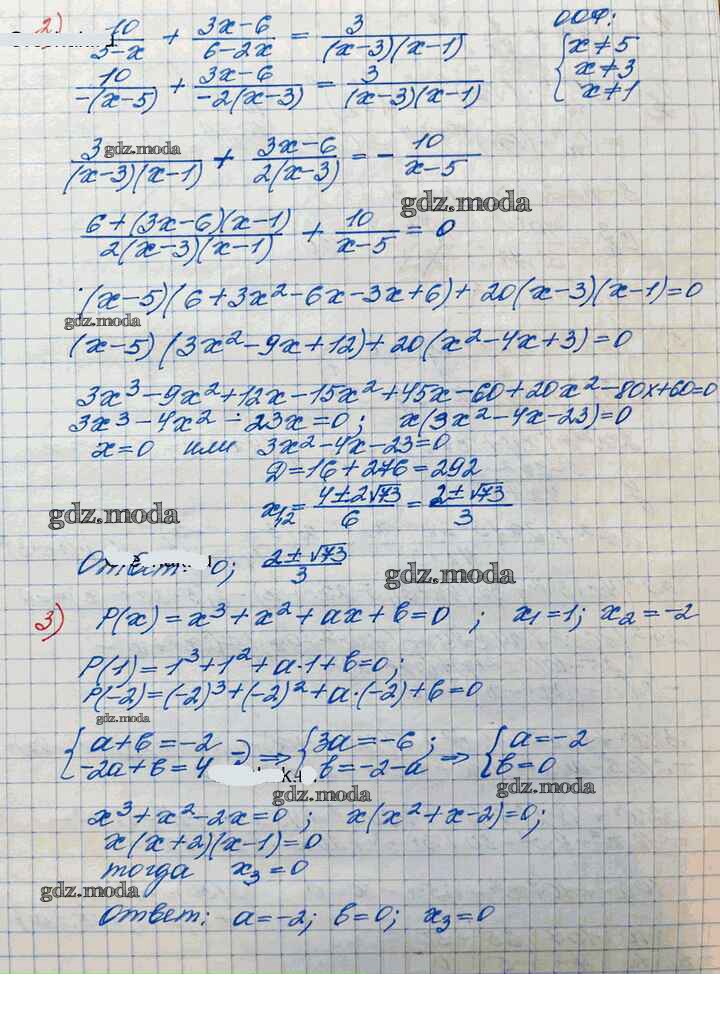 2) 10/(5-x) + (3x-6)/(6-2x) = 3/((x-3)(x-1))
ООФ:
{x≠5
x≠3
x≠1
10/(-(x-5)) + (3x-6)/(-2(x-3)) = 3/((x-3)(x-1))
3/((x-3)(x-1)) + (3x-6)/(2(x-3)) = - 10/(x-5)
gdz.moda
gdz.moda
(6+(3x-6)(x-1))/(2(x-3)(x-1)) + 10/(x-5) = 0
(x-5)(6+3x²-6x-3x+6)+20(x-3)(x-1)=0
gdz.moda
(x-5)(3x²-9x+12)+20(x²-4x+3)=0
3x³-9x²+12x-15x²+45x-60+20x²-80x+60=0
3x³-4x²-23x=0; x(3x²-4x-23)=0
x=0 или 3x²-4x-23=0
Д=16+276=292
x₁,₂=(4±2√73)/6=(2±√73)/3
gdz.moda
Ответ: 0; (2±√73)/3
gdz.moda
3) P(x)=x³+x²+ax+b=0; x₁=1; x₂=-2
P(1)=1³+1²+a·1+b=0;
P(-2)=(-2)³+(-2)²+a·(-2)+b=0
gdz.moda
{a+b=-2
-2a+b=4 ⇒ {3a=-6;
b=-2-a ⇒ {a=-2
b=0
gdz.moda
gdz.moda
x³+x²-2x=0; x(x²+x-2)=0;
x(x+2)(x-1)=0
тогда x₃=0
gdz.moda
Ответ: a=-2; b=0; x₃=0